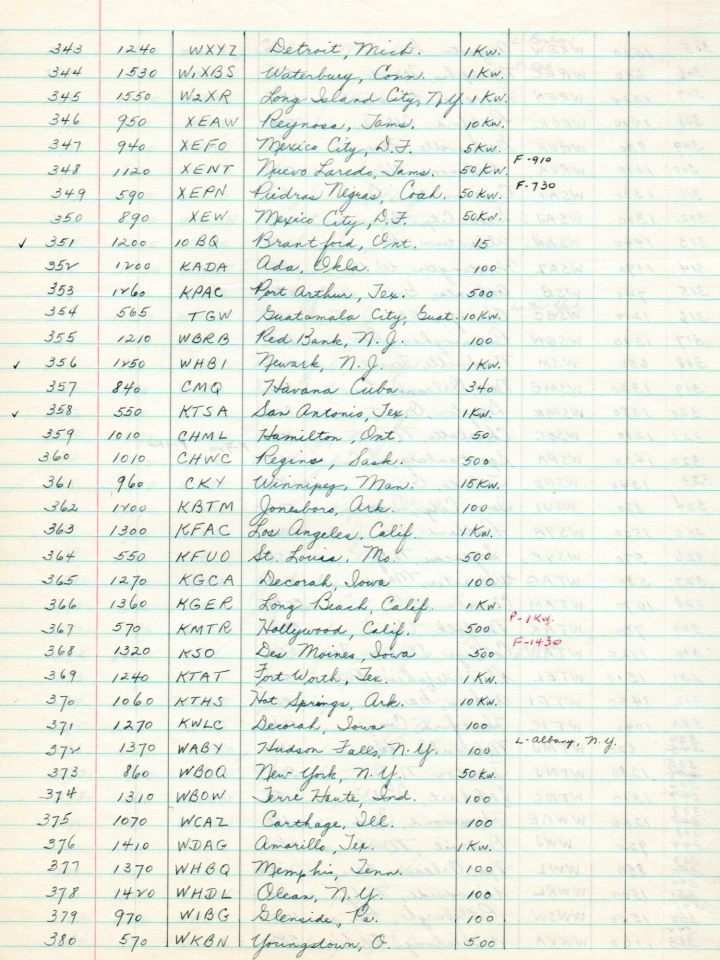 343 1240 WXYZ Detroit, Mich. 1 Kw.
344 1530 W1XBS Waterbury, Conn. 1 Kw.
345 1550 W2XR Long Island City, N.Y. 1 Kw.
346 950 XEAW Reynosa, Tams. 10 Kw.
347 940 XEFO Mexico City, D.F. 5 Kw.
348 1120 XENT Nuevo Laredo, Tams. 50 Kw. F-910
349 590 XEPN Piedras Negras, Coah. 50 Kw. F-730
350 890 XEW Mexico City, D.F. 50 Kw.
✓ 351 1200 10 BQ Brantford, Ont. 15
352 1200 KADA Ada, Okla. 100
353 1260 KPAC Port Arthur, Tex. 500
354 565 TGW Guatamala City, Guat. 10 Kw.
355 1210 WBRB Red Bank, N.J. 100
✓ 356 1250 WHBI Newark, N.J. 1 Kw.
357 840 CMQ Havana Cuba 340
✓ 358 550 KTSA San Antonio, Tex. 1 Kw.
359 1010 CHML Hamilton, Ont. 50
360 1010 CHWC Regina, Sask. 500
361 960 CKY Winnipeg, Man. 15 Kw.
362 1200 KBTM Jonesboro, Ark. 100
363 1300 KFAC Los Angeles, Calif. 1 Kw.
364 550 KFUO St. Louis, Mo. 500
365 1270 KGCA Decorah, Iowa 100
366 1360 KGER Long Beach, Calif. 1 Kw.
367 570 KMTR Hollywood, Calif. 500 P-1 Kw.
368 1320 KSO Des Moines, Iowa 500 F-1430
369 1240 KTAT Fort Worth, Tex. 1 Kw.
370 1060 KTHS Hot Springs, Ark. 10 Kw.
371 1270 KWLC Decorah, Iowa 100
372 1370 WABY Hudson Falls, N.Y. 100 L-Albany, N.Y.
373 860 WBOQ New York, N.Y. 50 Kw.
374 1310 WBOW Terre Haute, Ind. 100
375 1070 WCAZ Carthage, Ill. 100
376 1410 WDAG Amarillo, Tex. 1 Kw.
377 1370 WHBQ Memphis, Tenn. 100
378 1420 WHDL Olean, N.Y. 100
379 970 WIBG Glenside, Pa. 100
380 570 WKBN Youngstown, O. 500